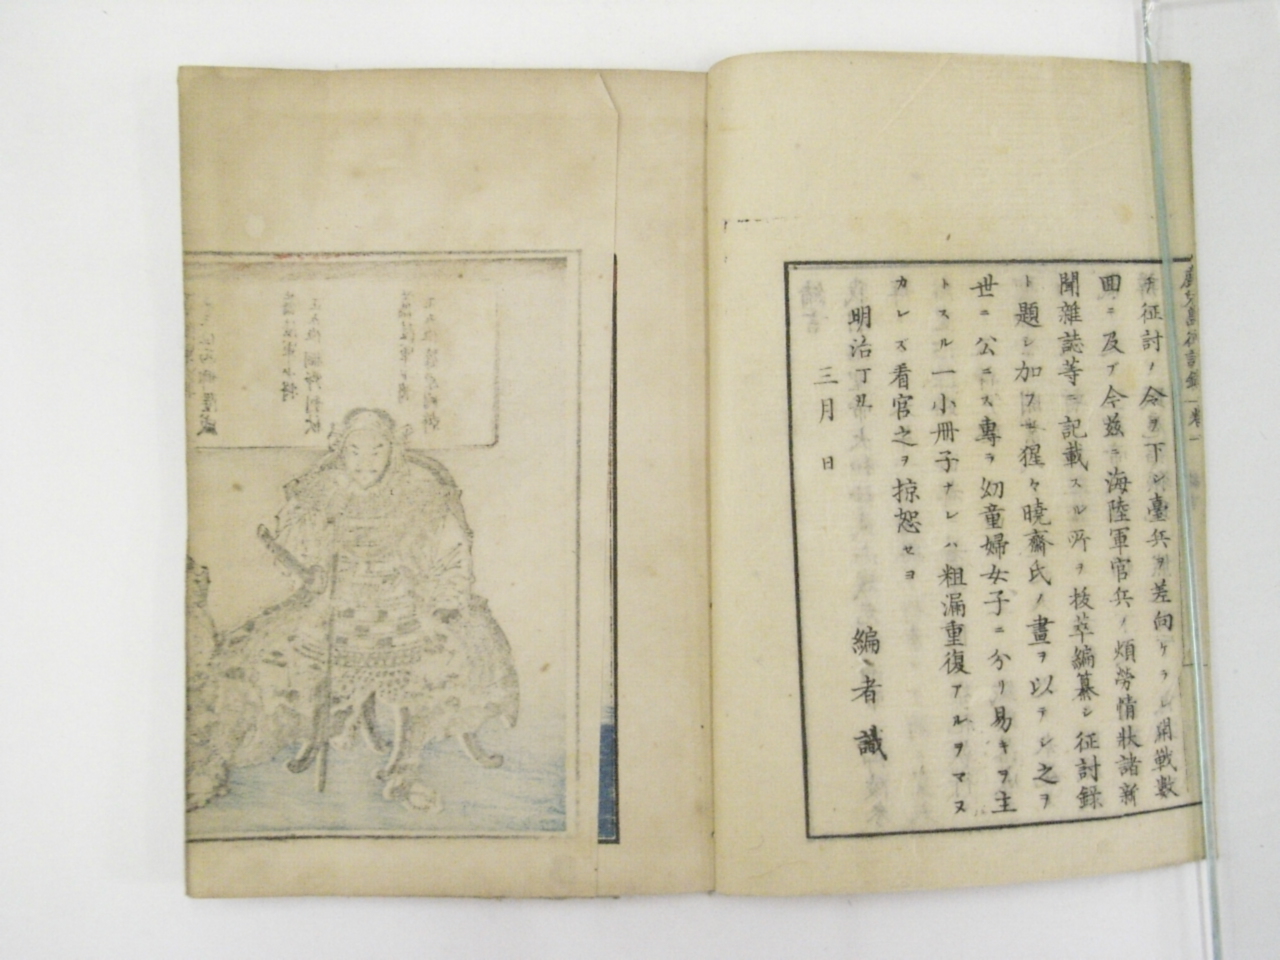 鹿児島征討録 卷一
テ征討ノ令ヲ下シ臺兵ヲ差向ケラレ開戦數
回ニ及ブ今茲ニ海陸軍官兵ノ煩勞情状諸新
聞雜誌等ニ記載スル所ヲ抜萃編纂シ征討録
ト題シ加フルニ猩々暁齋氏ノ畫ヲ以テシ之ヲ
世ニ公ニス專ラ幼童婦女子ニ分リ易キヲ主
トスル一小冊子ナレハ粗漏重復アルヲマヌ
カレズ看官之ヲ掠恕セヨ
明治丁丑
三月 日
編者識